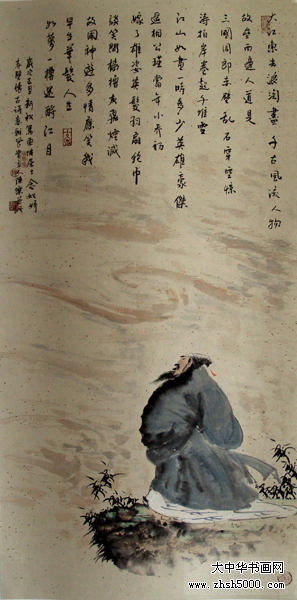 大江東去浪淘盡千古風流人物
故壘西邊人道是
三國周郎赤壁亂石穿空驚
濤拍岸卷起千堆雪
江山如畫一時多少英雄豪傑
遙想公瑾當年小喬初
嫁了雄姿英發羽扇綸巾
談笑間檣櫓灰飛煙滅
故國神遊多情應笑我
早生華髮人生
如夢一樽還酹江月
歲次乙酉新秋寫居士念奴嬌
赤壁懷古詩意
大中华书画网
www.zhsh5000.com